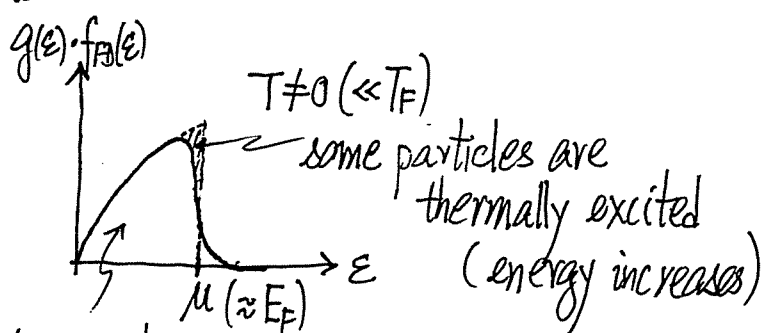 g(ε)·f_FD(ε)
T≠0 (≪T_F)
some particles are
thermally excited
(energy increases)
ε
μ (≈ E_F)